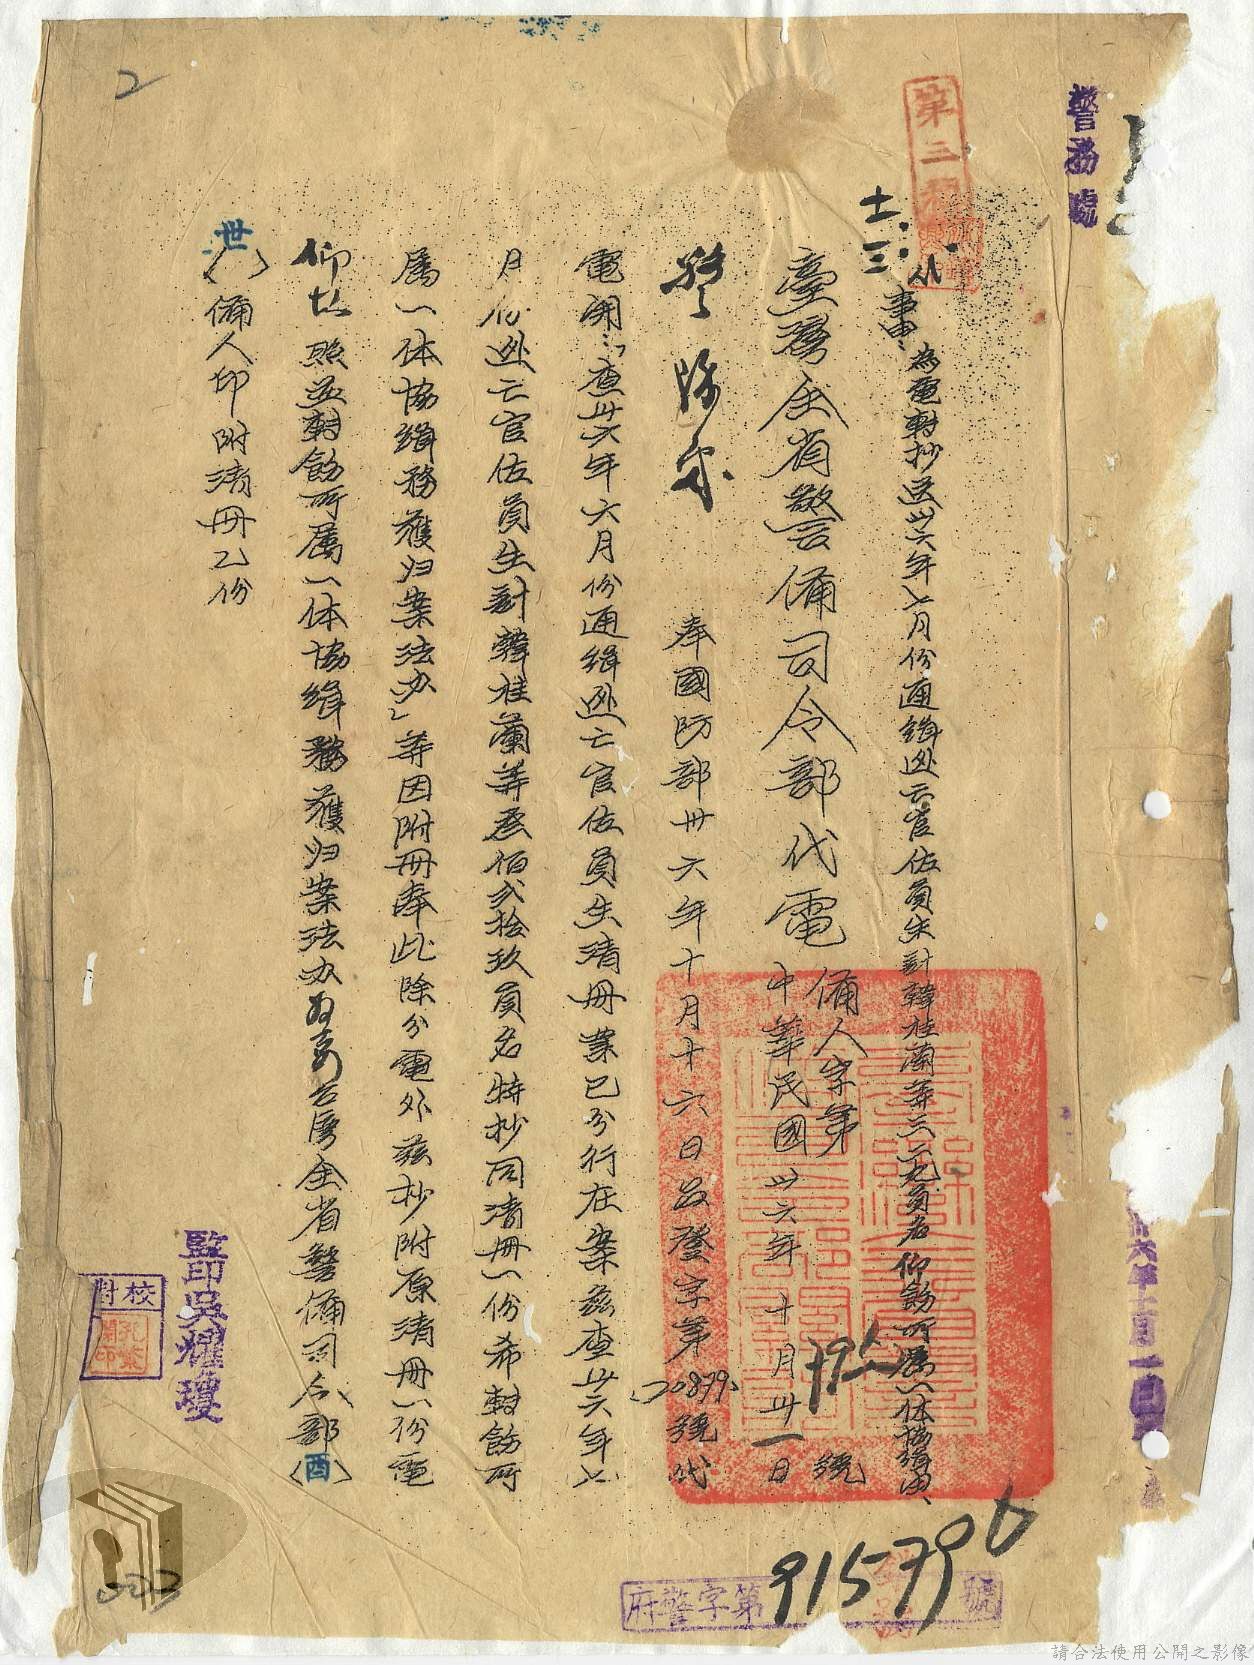 警務處
第三科
十一.三.
事由：為電轉抄送卅六年七月份通緝逃亡官佐員生計韓桂蘭等三二九員名仰飭所屬一体協緝由
臺灣全省警備司令部代電
備人字第795號
中華民國卅六年十月卅一日
警務處
奉國防部卅六年十月十六日 字第20879號代
電開：「查卅六年六月份通緝逃亡官佐員生清冊業已分行在案茲查卅六年七
月份逃亡官佐員生計韓桂蘭等叁佰貳拾玖員名特抄同清冊一份希轉飭所
屬一体協緝務獲归案法办」等因附冊奉此除分電外茲抄附原清冊一份電
仰 照並轉飭所屬一体協緝務獲归案法办為要台灣全省警備司令部(酉)
(世)備人印附清冊乙份
監印吳耀瓊
校對
卅六年十一月一日
府警字第915796號
2
003
請合法使用公開之影像